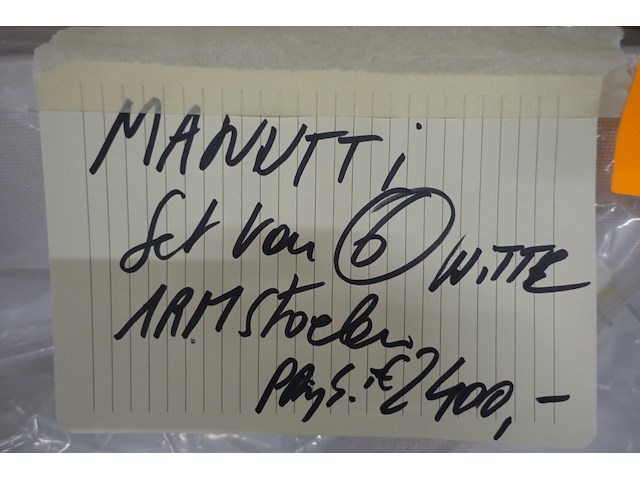 MANUTTi
Set van 6 WiTTE
ARMStoelen
PRijs. € 2400,-